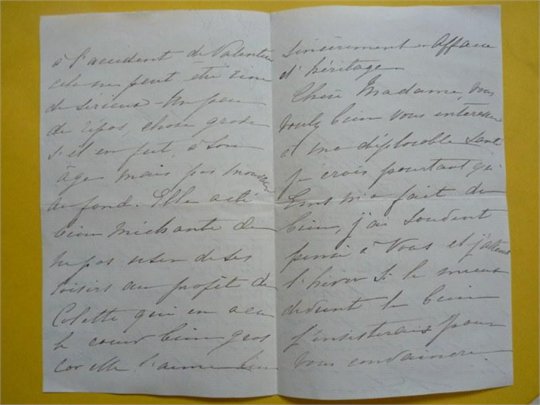 à l'accident de Valentin
cela ne peut être rien
de sérieux. Un peu
de repos, chose
s'il en fut, à son
âge mais pas
au fond. Elle a été
bien méchante de
ne pas user de ses
loisirs au profit de
Colette qui en a eu
le cœur bien gros
car elle l'aime bien
sincèrement. Affaire
d'héritage
Chère Madame, vous
voulez bien vous intéresser
à ma déplorable santé
je crois pourtant qu'
Ems m'a fait du
bien, j'ai souvent
pensé à Vous et j'attends
l'hiver si le mieux
devient le bien
j'insisterais pour
vous convaincre.